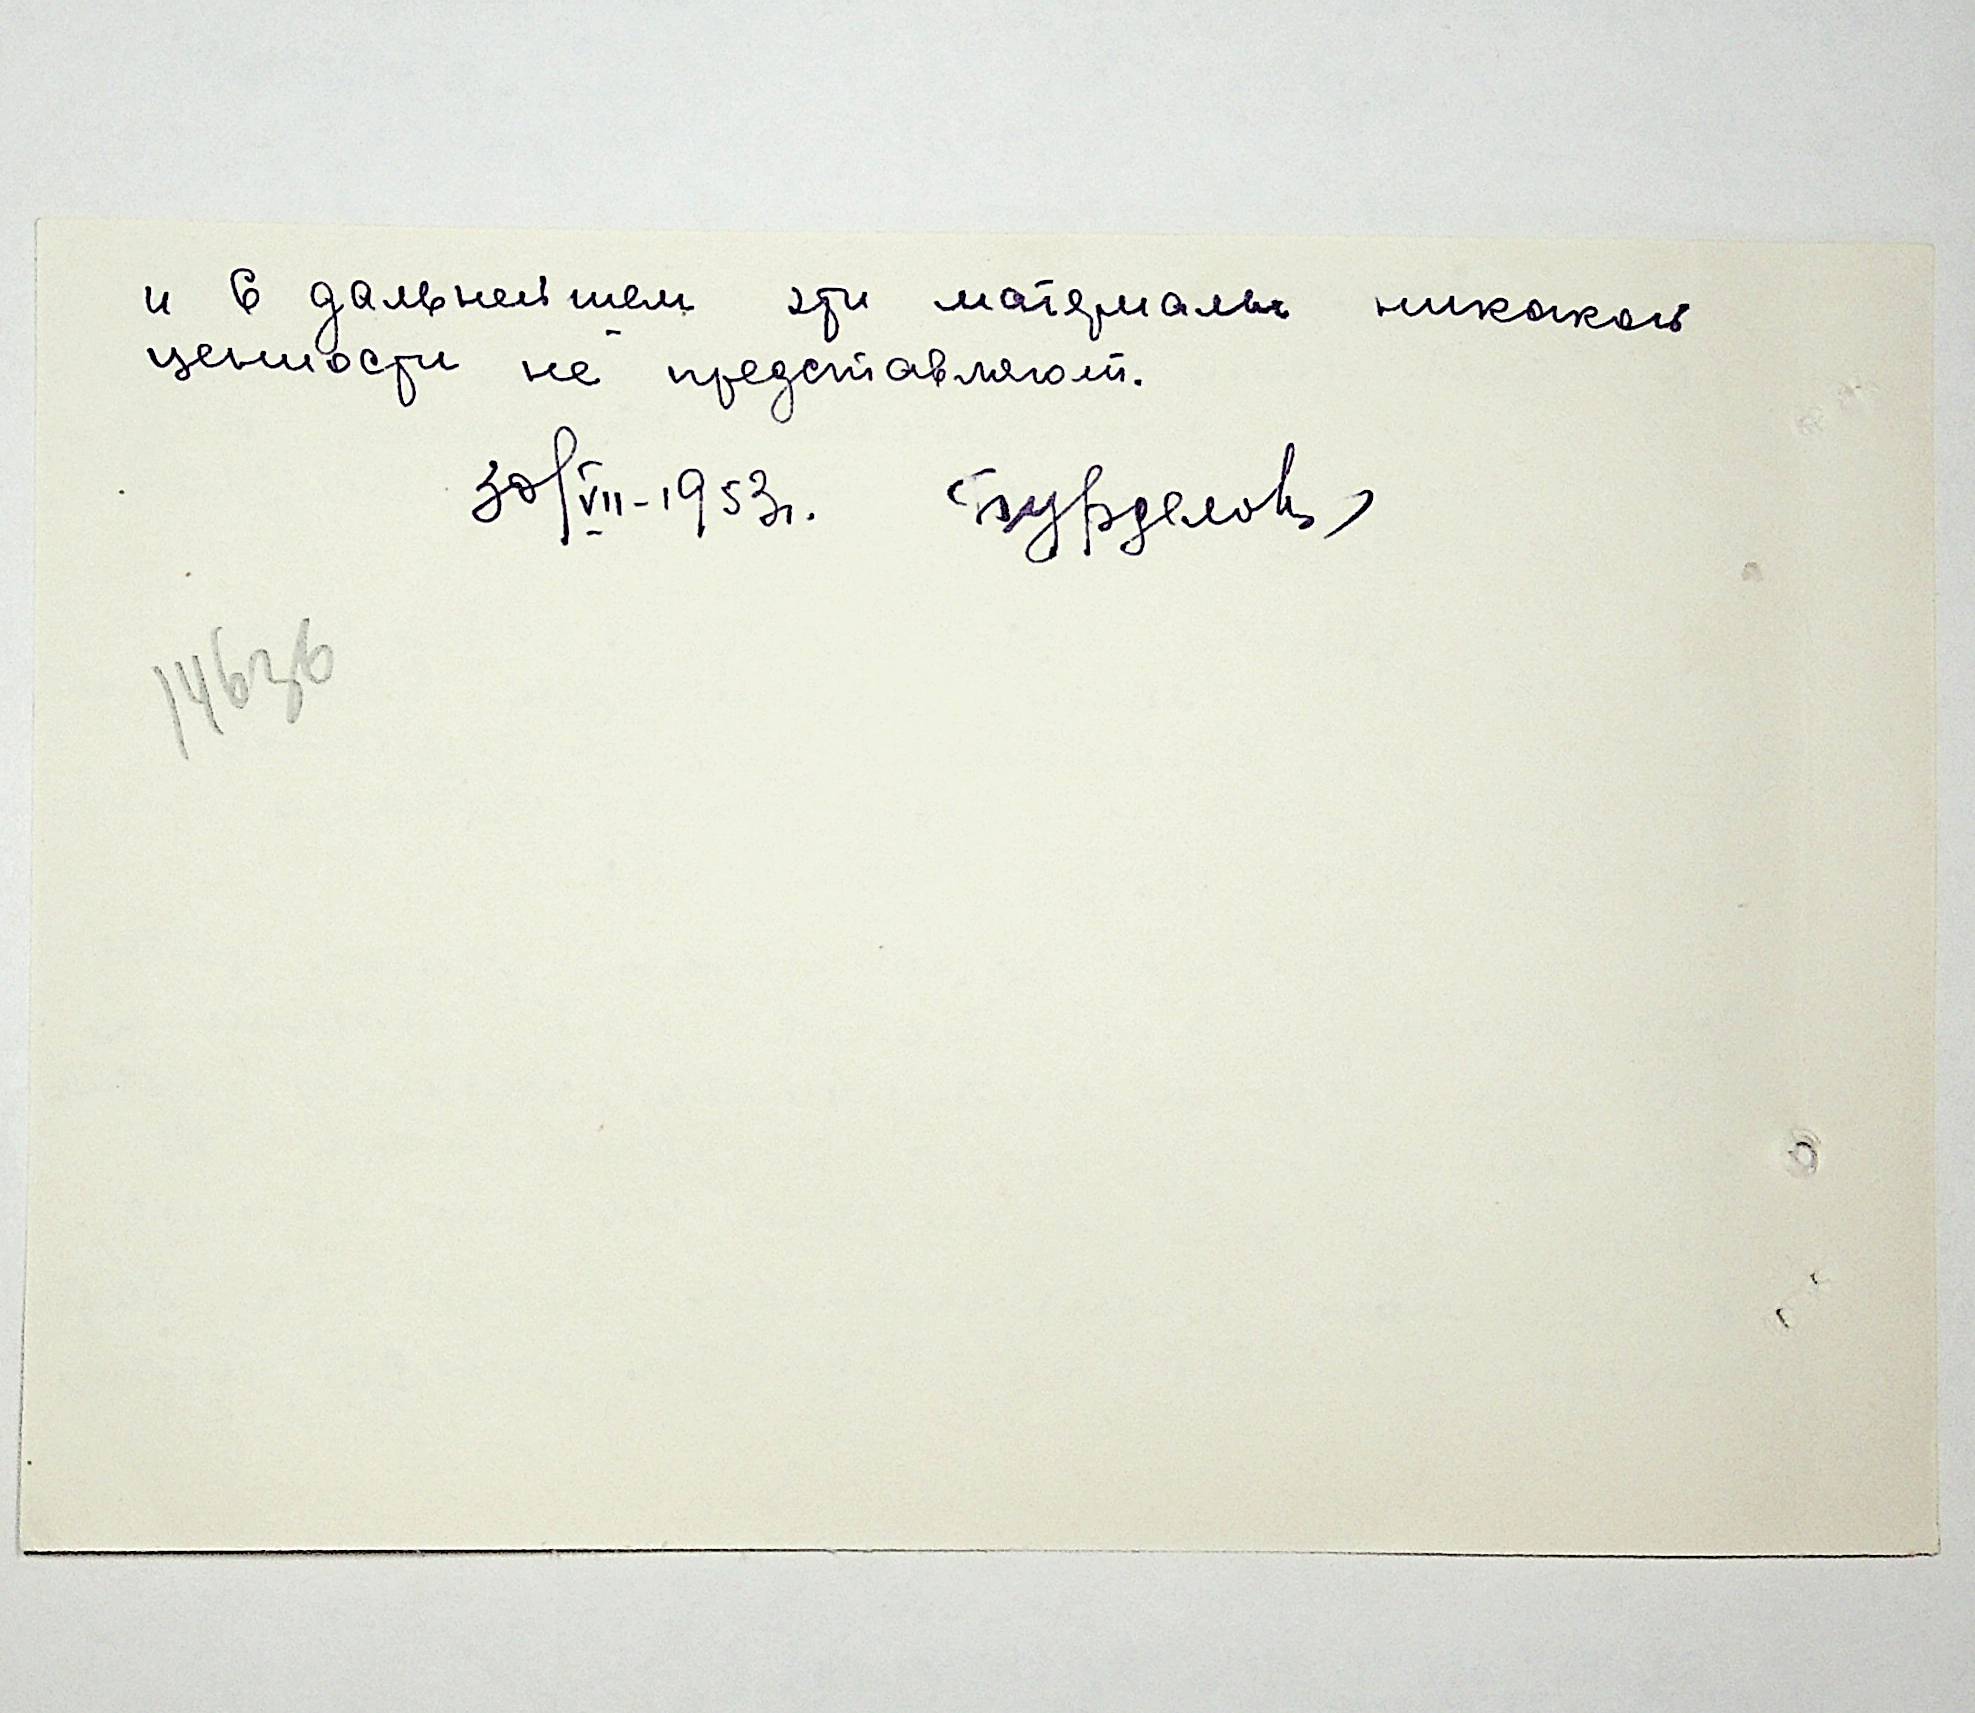 и в дальнейшем эти материалы никакой
ценности не представляют.
30/VII-1953г. Бурделов
14636